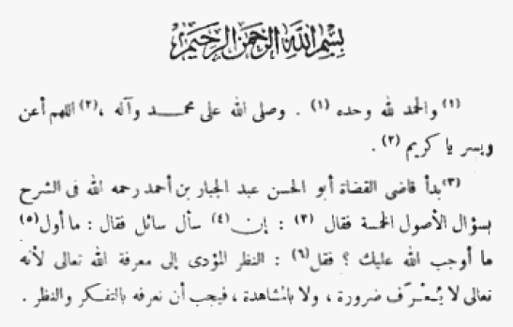 بسم الله الرحمن الرحيم
(١) والحمد لله وحده (١) . وصلى الله على محمد وآله ،(٢) اللهم أعن
ويسر يا كريم (٢) .
(٣) بدأ قاضى القضاة أبو الحسن عبد الجبار بن أحمد رحمه الله فى الشرح
بسؤال الأصول الخمسة فقال (٣) : إن (٤) سأل سائل فقال : ما أول (٥)
ما أوجب الله عليك ؟ فقل (٦) : النظر المؤدى إلى معرفة الله تعالى لأنه
تعالى لا يُعْرَف ضرورة ، ولا بالمشاهدة ، فيجب أن نعرفه بالتفكر والنظر .